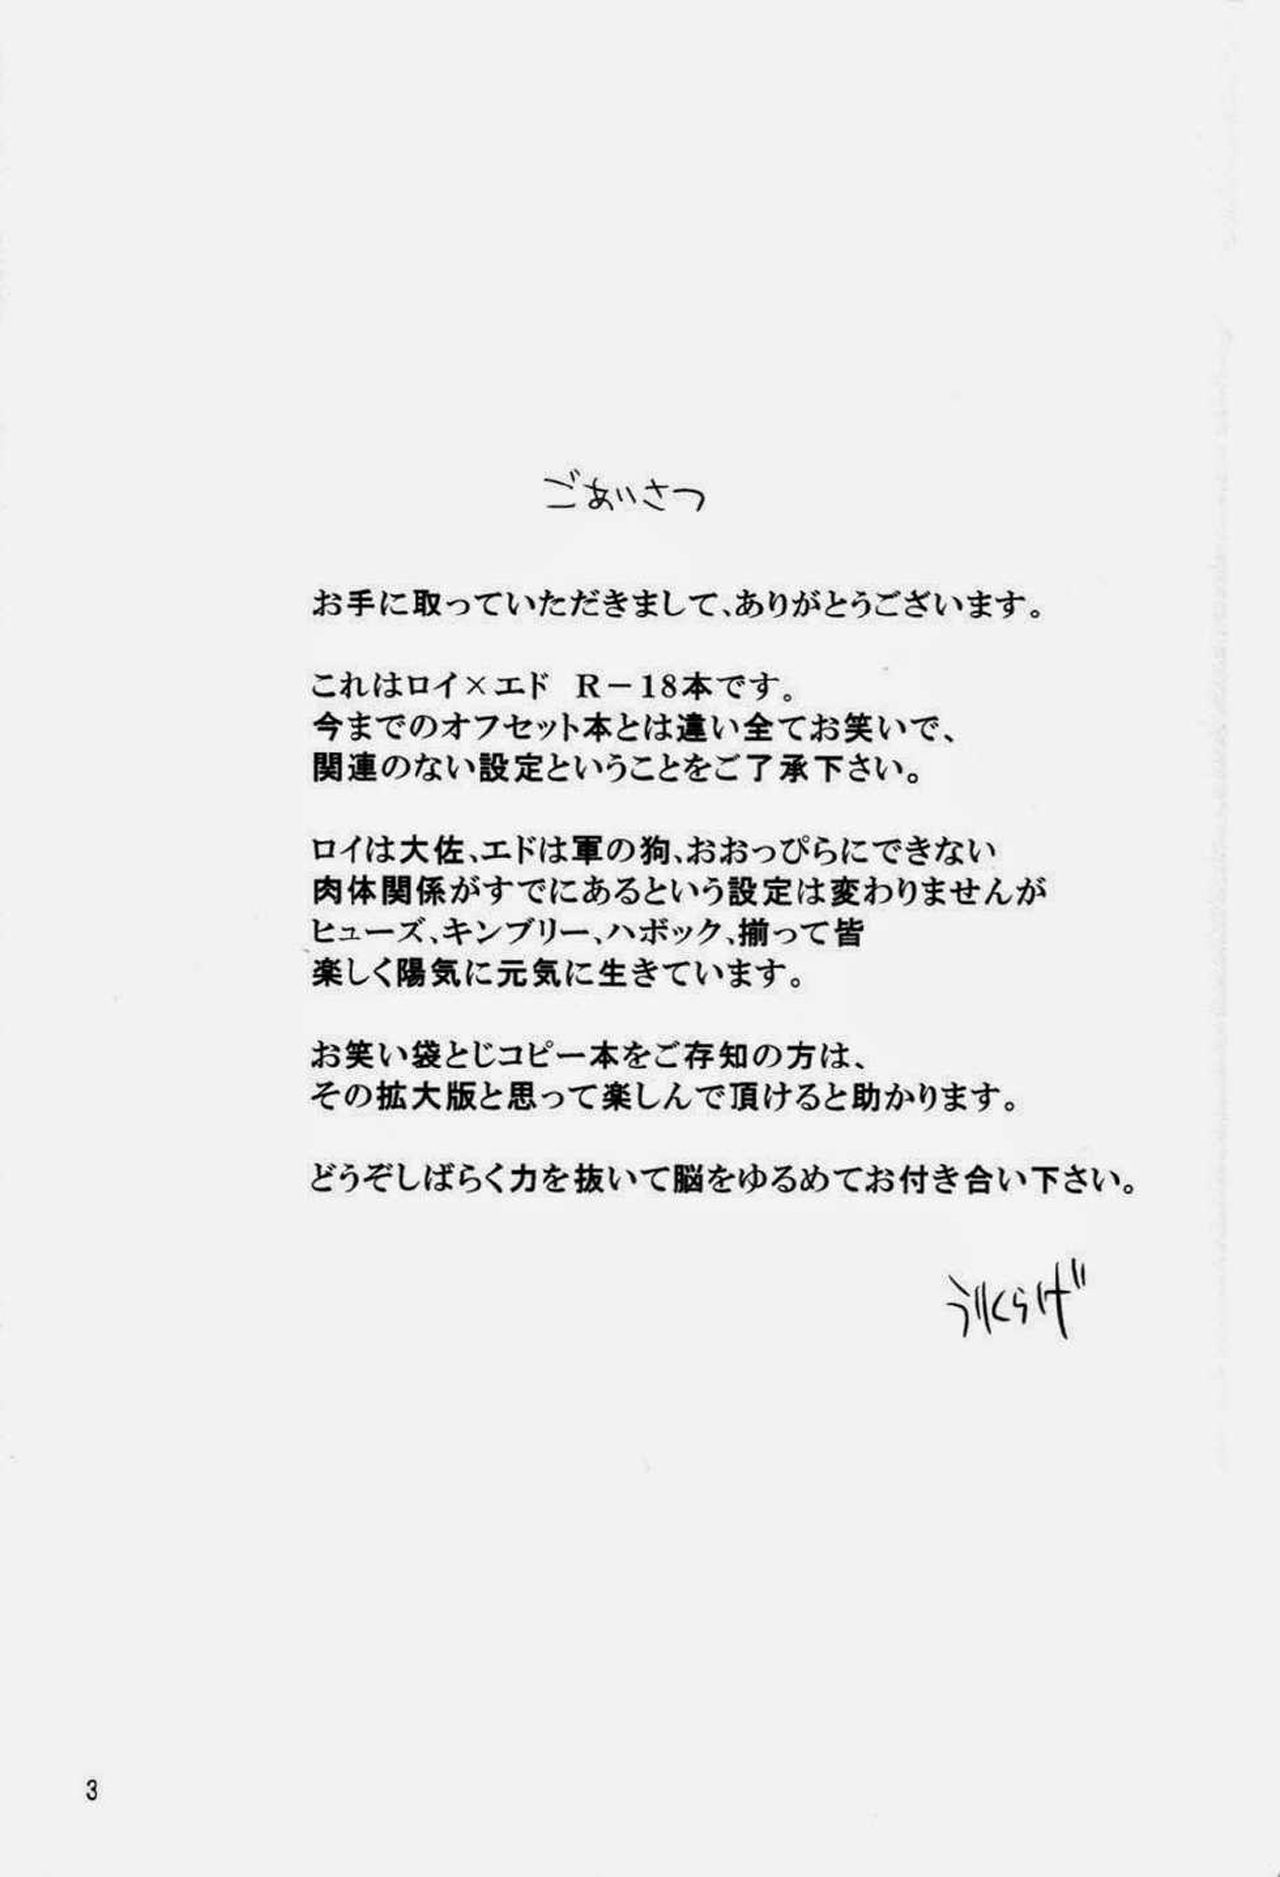 ごあいさつ
お手に取っていただきまして、ありがとうございます。
これはロイ×エド R－18本です。
今までのオフセット本とは違い全てお笑いで、
関連のない設定ということをご了承下さい。
ロイは大佐、エドは軍の狗、おおっぴらにできない
肉体関係がすでにあるという設定は変わりませんが
ヒューズ、キンブリー、ハボック、揃って皆
楽しく陽気に元気に生きています。
お笑い袋とじコピー本をご存知の方は、
その拡大版と思って楽しんで頂けると助かります。
どうぞしばらく力を抜いて脳をゆるめてお付き合い下さい。
うりくらげ
3